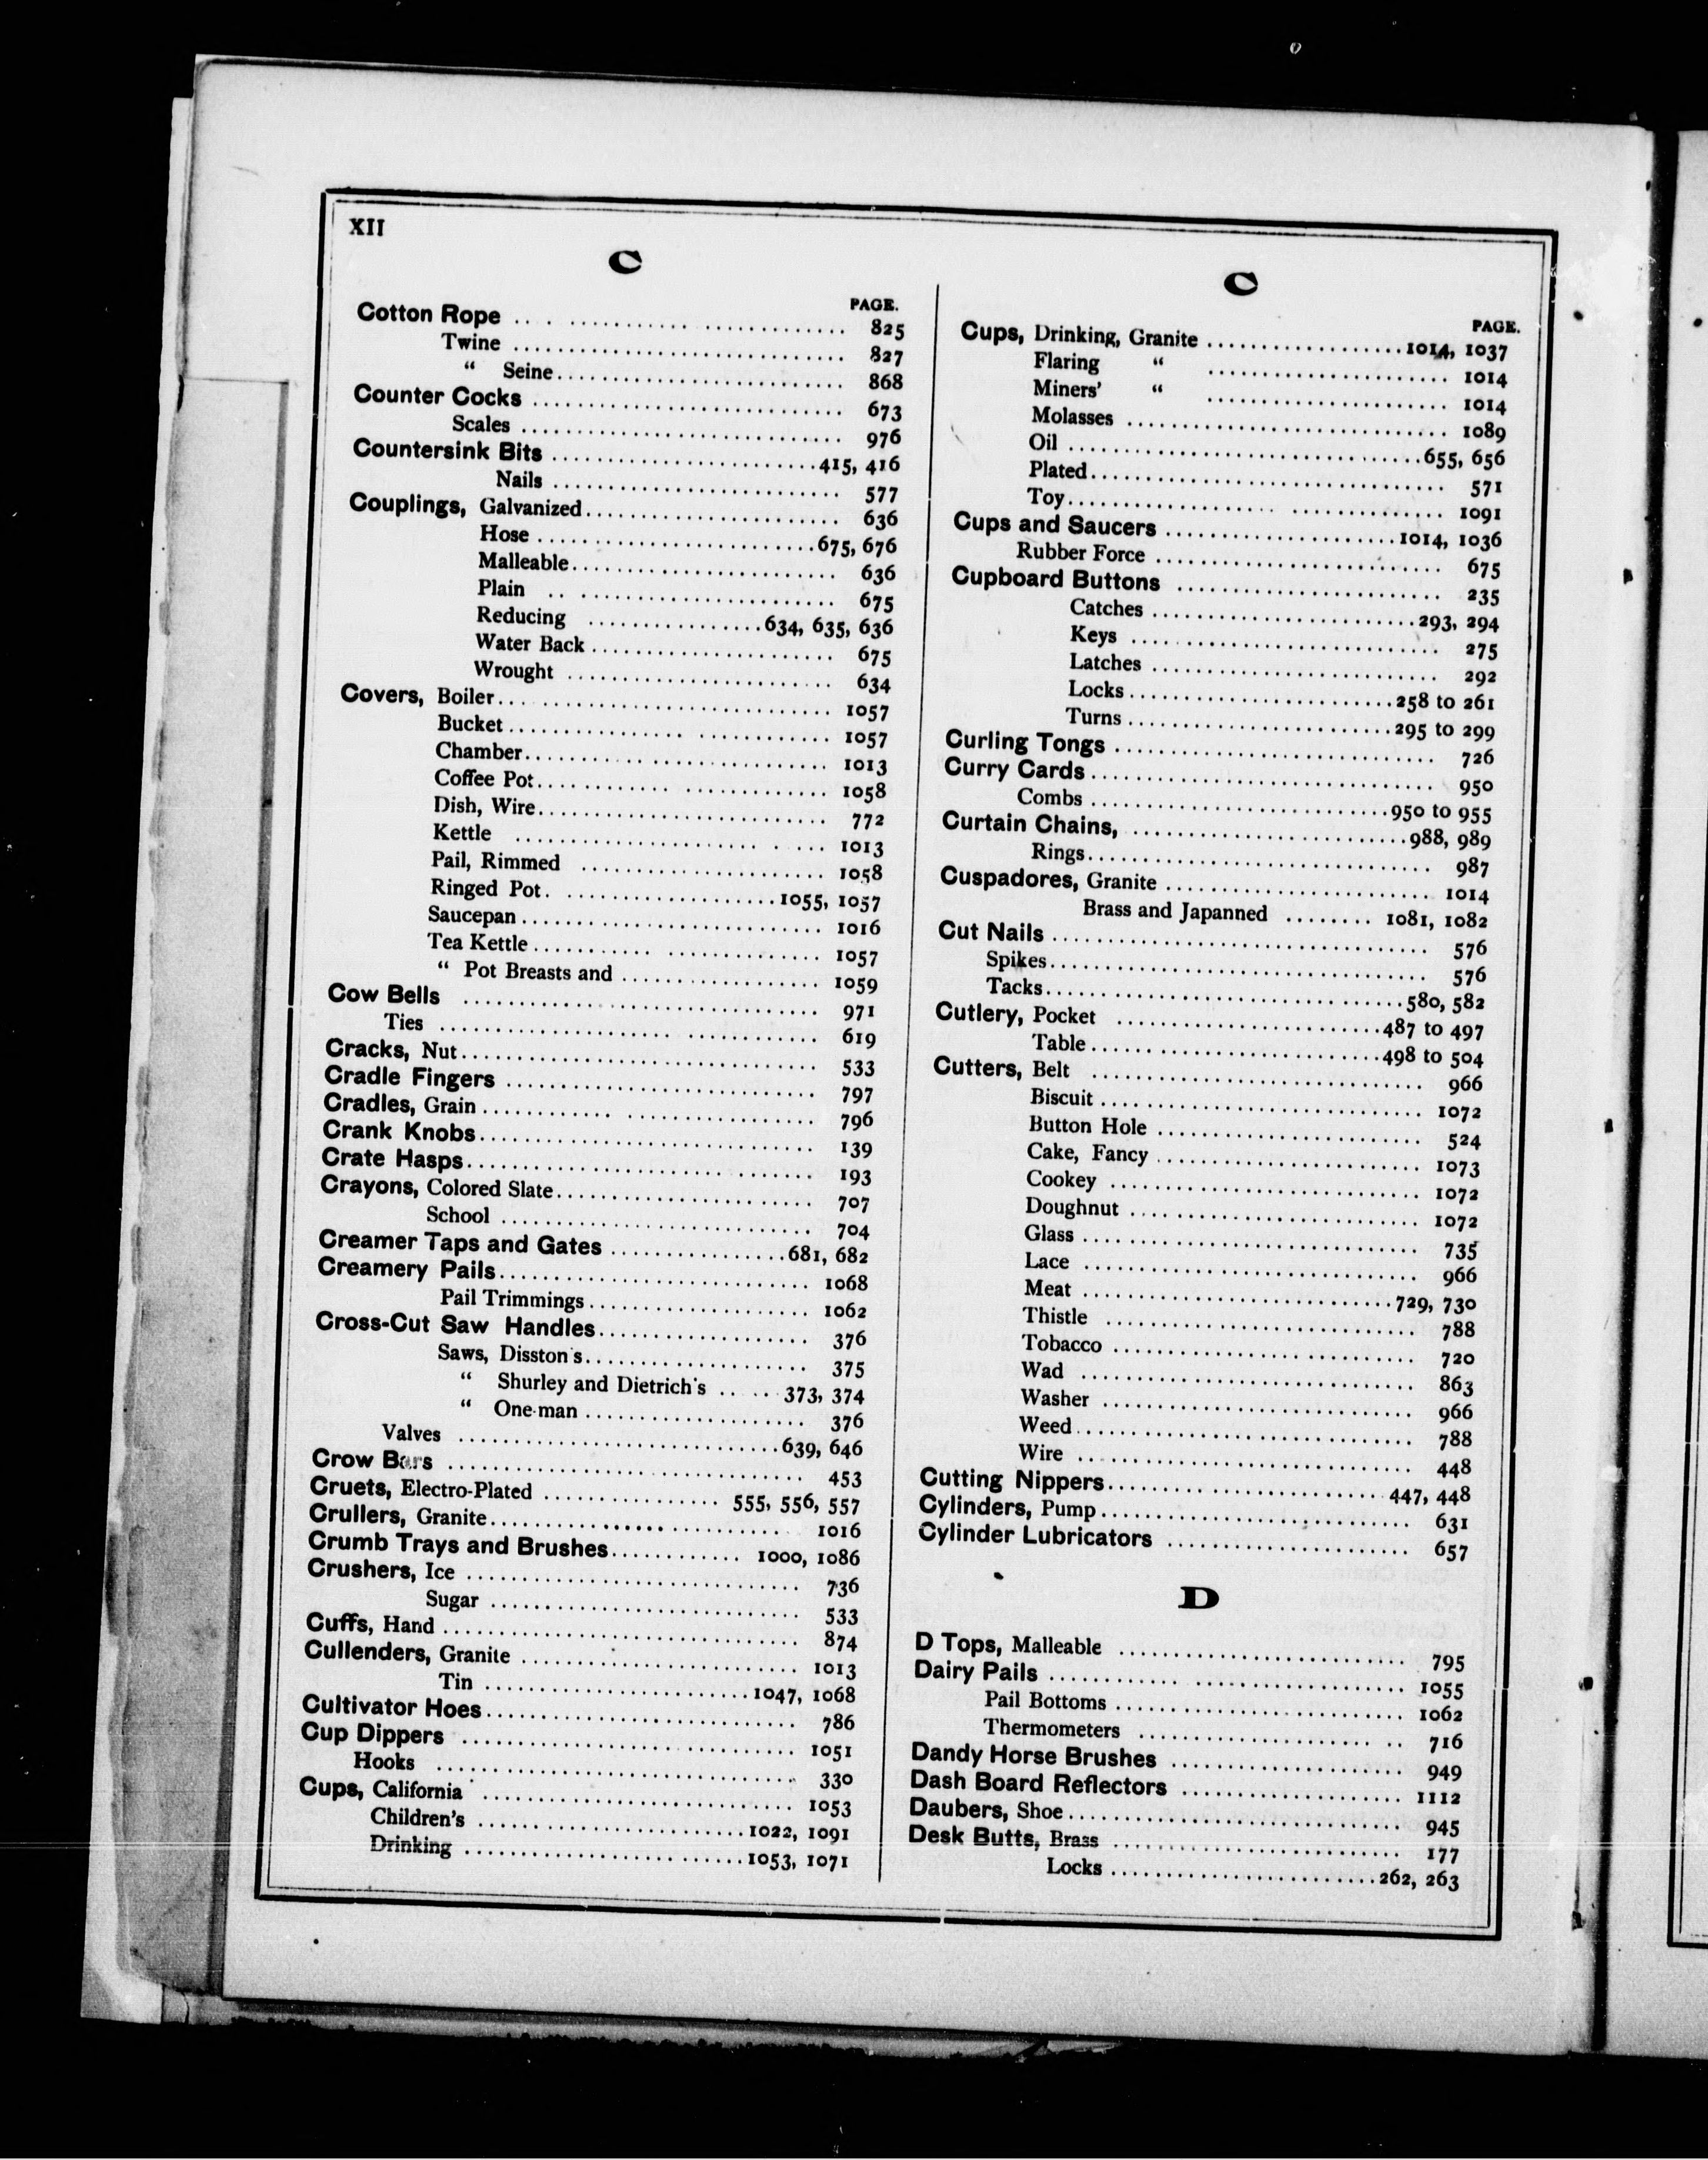 XII
C
PAGE.
Cotton Rope .... ............................ 825
Twine .................................. 827
“ Seine............................. 868
Counter Cocks ................................ 673
Scales ................................. 976
Countersink Bits ...........................415, 416
Nails ............................. 577
Couplings, Galvanized.......................... 636
Hose ............................675, 676
Malleable........................... 636
Plain .. .......................... 675
Reducing ..................634, 635, 636
Water Back......................... 675
Wrought ........................... 634
Covers, Boiler.................................. 1057
Bucket................................. 1057
Chamber............................... 1013
Coffee Pot.............................. 1058
Dish, Wire.............................. 772
Kettle ............................... 1013
Pail, Rimmed ......................... 1058
Ringed Pot. .......................1055, 1057
Saucepan............................... 1016
Tea Kettle.............................. 1057
“ Pot Breasts and .................... 1059
Cow Bells .................................... 971
Ties ...................................... 619
Cracks, Nut.................................... 533
Cradle Fingers ................................ 797
Cradles, Grain.................................. 796
Crank Knobs................................... 139
Crate Hasps.................................... 193
Crayons, Colored Slate.......................... 707
School ................................ 704
Creamer Taps and Gates ..................681, 682
Creamery Pails................................ 1068
Pail Trimmings....................... 1062
Cross-Cut Saw Handles...................... 376
Saws, Disston's....................... 375
“ Shurley and Dietrich's ..... 373, 374
“ One-man ...................... 376
Valves ................................639, 646
Crow Bars .................................... 453
Cruets, Electro-Plated .................. 555, 556, 557
Crullers, Granite................................ 1016
Crumb Trays and Brushes............. 1000, 1086
Crushers, Ice .................................. 736
Sugar ................................ 533
Cuffs, Hand .................................... 874
Cullenders, Granite ............................ 1013
Tin ...........................1047, 1068
Cultivator Hoes................................ 786
Cup Dippers .................................. 1051
Hooks .................................... 330
Cups, California ................................ 1053
Children's ...........................1022, 1091
Drinking ............................1053, 1071
C
PAGE.
Cups, Drinking, Granite ....................1014, 1037
Flaring “ ........................ 1014
Miners' “ ........................ 1014
Molasses ................................ 1089
Oil ....................................655, 656
Plated.................................... 571
Toy...................................... 1091
Cups and Saucers ........................1014, 1036
Rubber Force ................................ 675
Cupboard Buttons ............................ 235
Catches ...........................293, 294
Keys ............................... 275
Latches ............................. 292
Locks...........................258 to 261
Turns...........................295 to 299
Curling Tongs ................................ 726
Curry Cards................................... 950
Combs ..............................950 to 955
Curtain Chains, ............................988, 989
Rings................................... 987
Cuspadores, Granite ............................ 1014
Brass and Japanned ......... 1081, 1082
Cut Nails ...................................... 576
Spikes...................................... 576
Tacks....................................580, 582
Cutlery, Pocket ...........................487 to 497
Table.............................498 to 504
Cutters, Belt .................................. 966
Biscuit................................. 1072
Button Hole ........................... 524
Cake, Fancy ........................... 1073
Cookey ................................ 1072
Doughnut .............................. 1072
Glass .................................. 735
Lace .................................. 966
Meat ................................729, 730
Thistle ................................ 788
Tobacco ............................... 720
Wad .................................. 863
Washer ................................ 966
Weed................................... 788
Wire .................................. 448
Cutting Nippers............................447, 448
Cylinders, Pump................................ 631
Cylinder Lubricators ......................... 657
D
D Tops, Malleable ............................. 795
Dairy Pails .................................... 1055
Pail Bottoms ............................. 1062
Thermometers ........................... 716
Dandy Horse Brushes ........................ 949
Dash Board Reflectors ....................... 1112
Daubers, Shoe.................................. 945
Desk Butts, Brass .............................. 177
Locks ............................262, 263